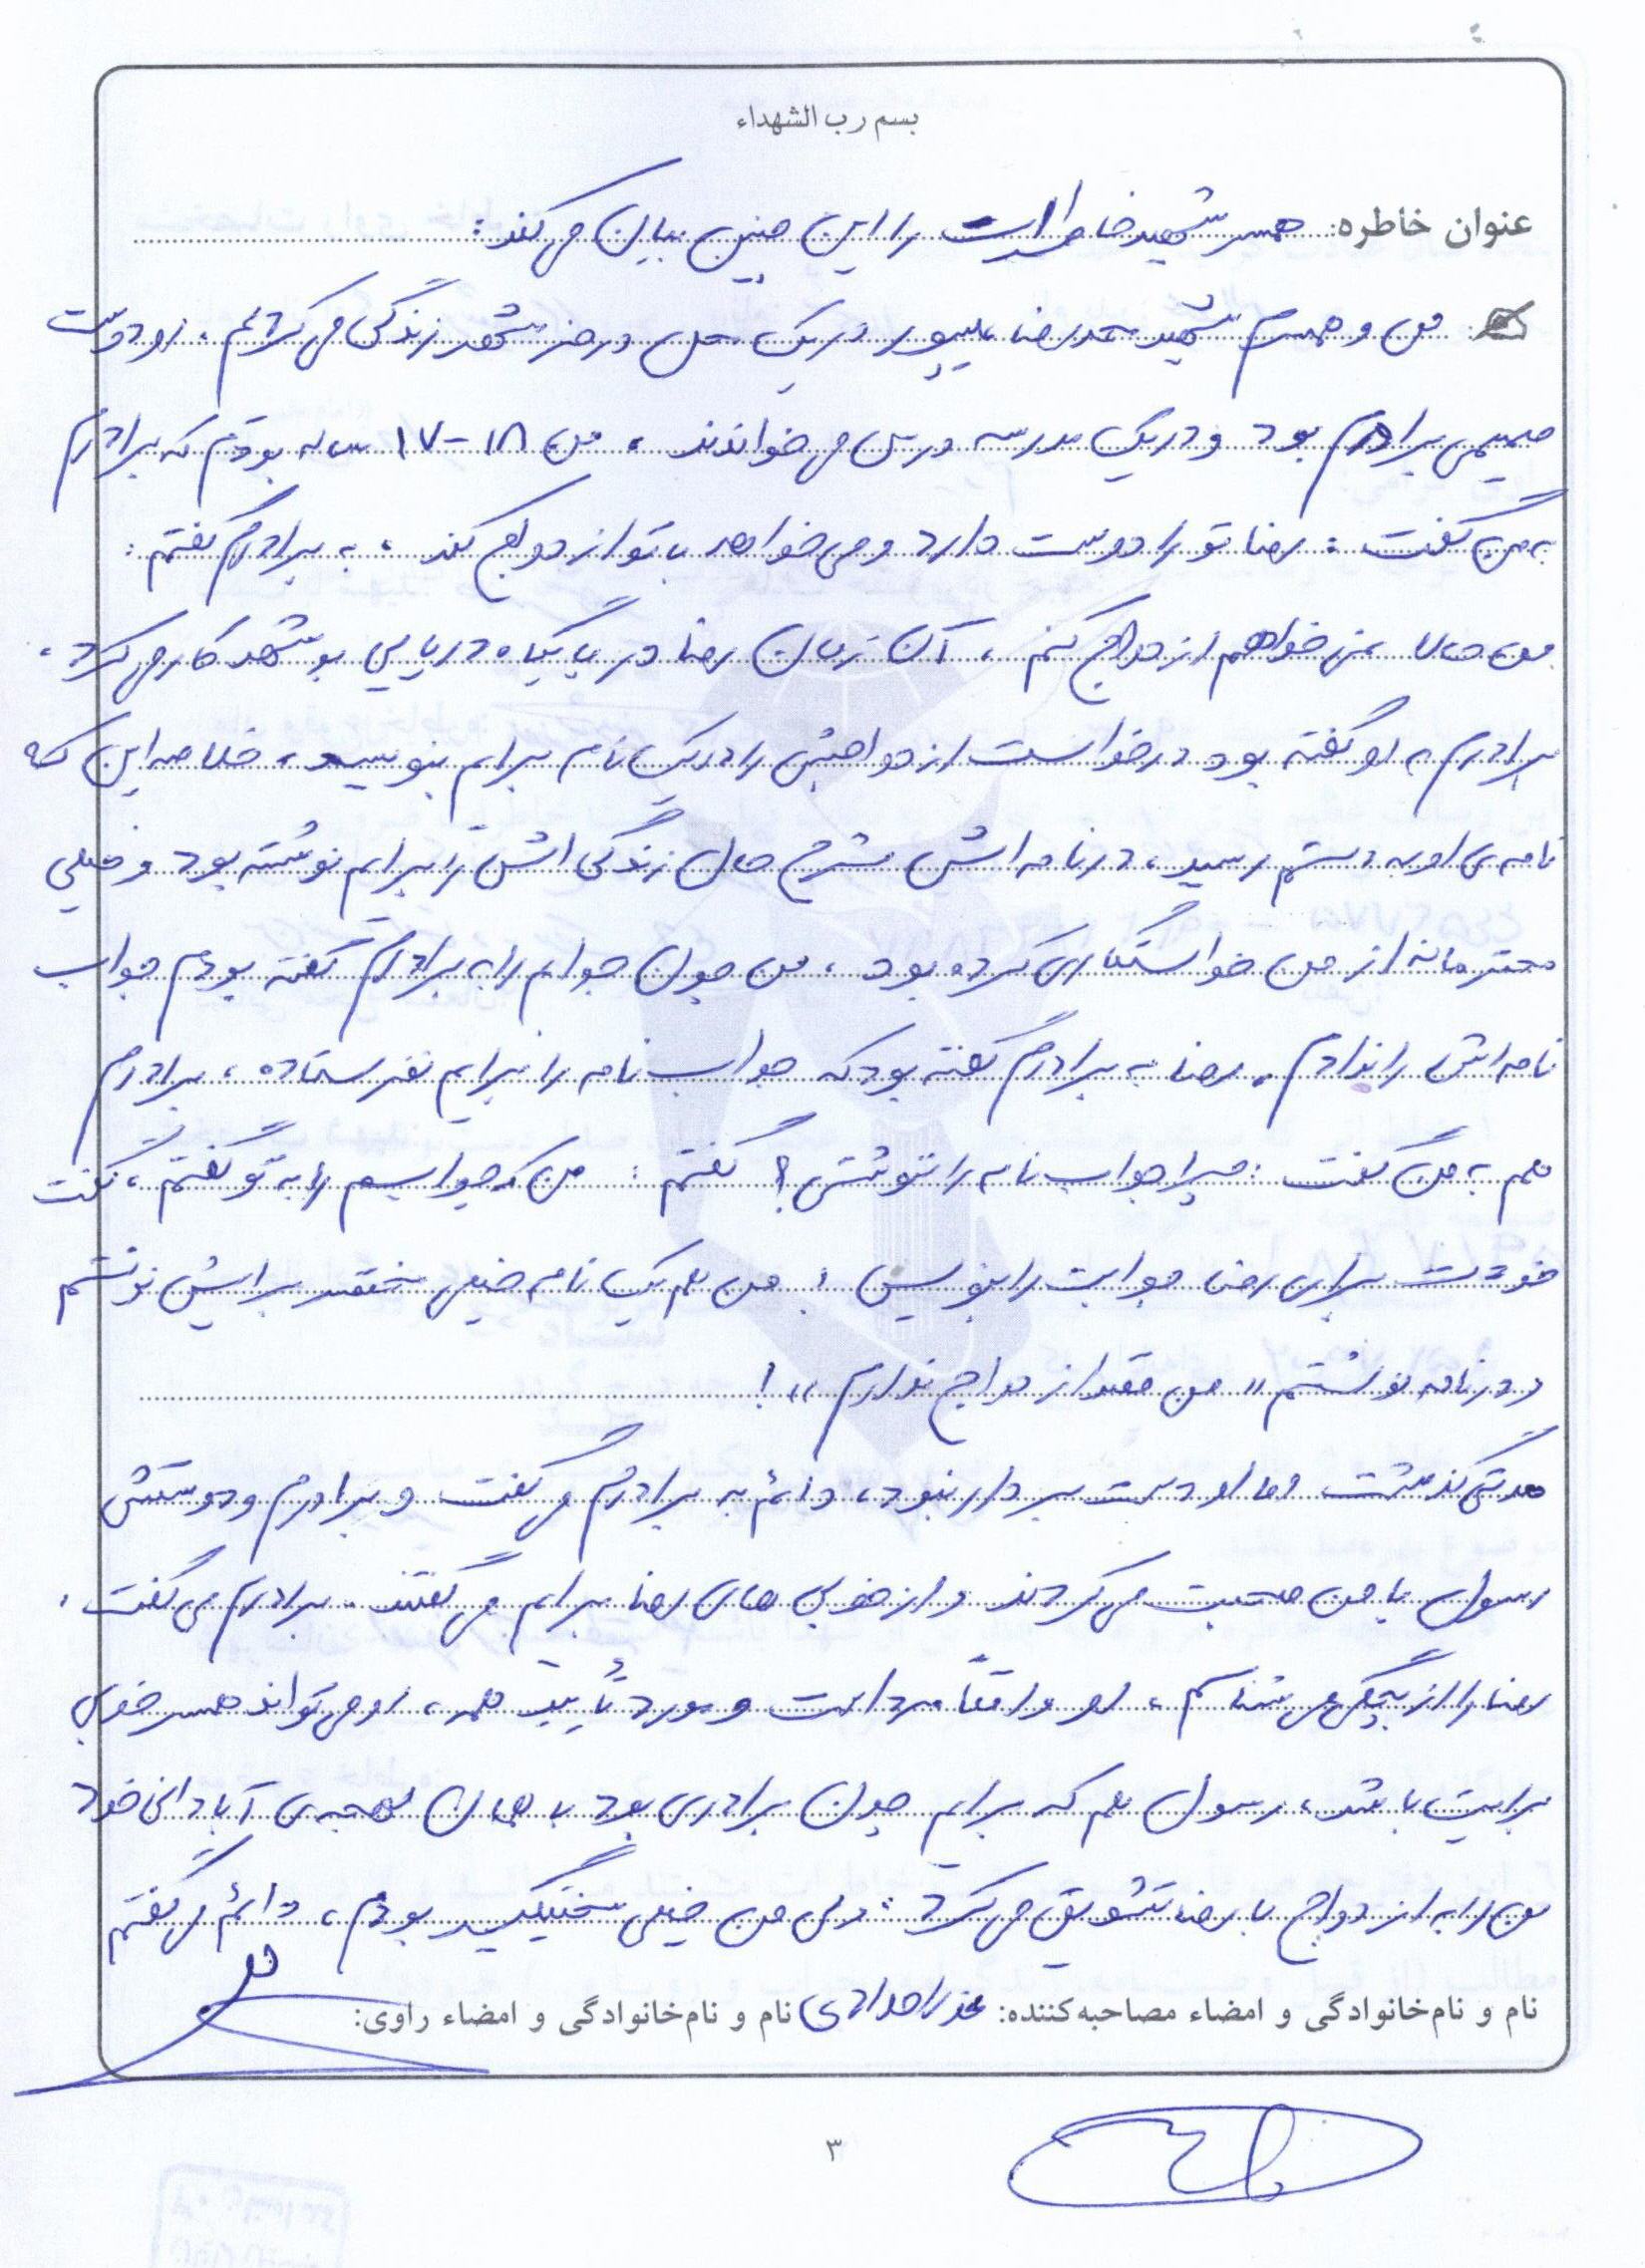 بسم رب الشهداء
عنوان خاطره: همسر شهید خاطرات را این چنین بیان می‌کند:
من و همسرم شهید محمدرضا علیپور در یک محل در خرمشهر زندگی می‌کردیم، او دوست
صمیمی برادرم بود و در یک مدرسه درس می‌خواندند، من ۱۸-۱۷ ساله بودم که برادرم
به من گفت: رضا تو را دوست دارد و می‌خواهد با تو ازدواج کند، به برادرم گفتم:
من حالا نمی‌خواهم ازدواج کنم، آن زمان رضا در پایگاه دریایی بوشهر کار می‌کرد،
برادرم به او گفته بود درخواست ازدواجش را در یک نامه برایم بنویسد، خلاصه این که
نامه‌ی او به دستم رسید، در نامه‌اش شرح حال زندگی‌اش را برایم نوشته بود و خیلی
محترمانه از من خواستگاری کرده بود، من چون جوابم را به برادرم گفته بودم جواب
نامه‌اش را ندادم. رضا به برادرم گفته بود که جواب نامه را برایم نفرستاده، برادرم
هم به من گفت: چرا جواب نامه را ننوشتی؟ گفتم: من که جوابم را به تو گفتم، گفت
خودت برای رضا جوابت را بنویس! من هم یک نامه خیلی مختصر برایش نوشتم
در نامه نوشتم «من قصد ازدواج ندارم»!
مدتی گذشت اما او دست بردار نبود، دائم به برادرم می‌گفت و برادرم و دوستش
رسول با من صحبت می‌کردند و از خوبی‌های رضا برایم می‌گفتند. برادرم می‌گفت:
رضا را از بچگی می‌شناسم، او واقعاً مرد است و مورد تأیید همه، او می‌تواند همسر خوبی
برایت باشد، رسول هم که برایم چون برادری بود با همان لهجه‌ی آبادانی خود
من را به ازدواج با رضا تشویق می‌کرد؛ ولی من خیلی سختگیر بودم، دائم می‌گفتم
نام و نام‌خانوادگی و امضاء مصاحبه‌کننده: نام و نام‌خانوادگی و امضاء راوی:
۳